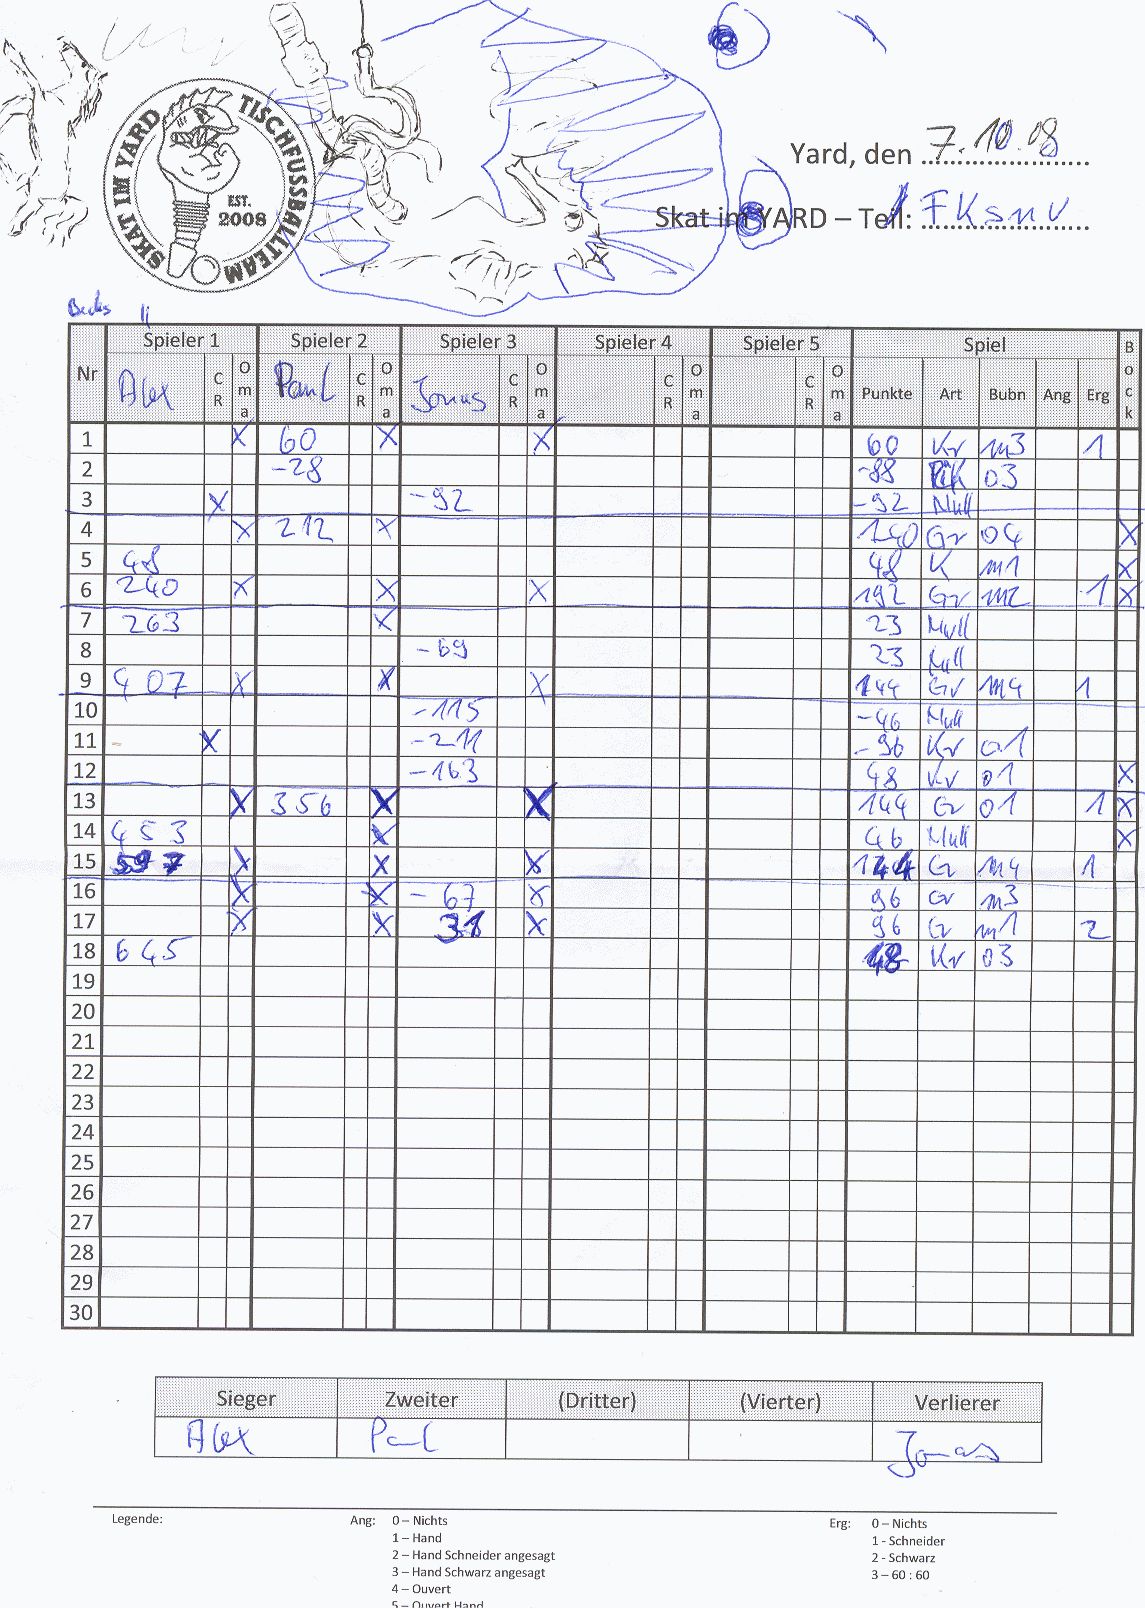 SKAT IM YARD TISCHFUSSBALLTEAM
EST.
2008
Yard, den 7.10.08
Skat im YARD – Teil: FKsnv
Becks II
Nr Spieler 1 Spieler 2 Spieler 3 Spieler 4 Spieler 5 Spiel Bock
Alex CR Oma Paul CR Oma Jonas CR Oma CR Oma CR Oma Punkte Art Bubn Ang Erg
1 X 60 X X 60 Kr m3 1
2 -28 -88 Pik 03
3 X -92 -92 Null
4 X 212 X 240 Gr 04 X
5 48 48 K m1 X
6 240 X X X 192 Gr m2 1 X
7 263 X 23 Null
8 -69 23 Null
9 407 X X X 144 Gr m4 1
10 -115 -46 Null
11 - X -211 -96 Kr 01
12 -163 48 Kr 01 X
13 X 356 X X 144 Gr 01 1 X
14 453 X 46 Null X
15 597 X X X 144 G m4 1
16 X X -67 X 96 Gr m3
17 X X 31 X 96 G m1 2
18 645 48 Kr 03
19
20
21
22
23
24
25
26
27
28
29
30
Sieger Zweiter (Dritter) (Vierter) Verlierer
Alex Paul Jonas
Legende: Ang: 0 – Nichts Erg: 0 – Nichts
1 – Hand 1 - Schneider
2 – Hand Schneider angesagt 2 - Schwarz
3 – Hand Schwarz angesagt 3 – 60 : 60
4 – Ouvert
5 – Ouvert Hand